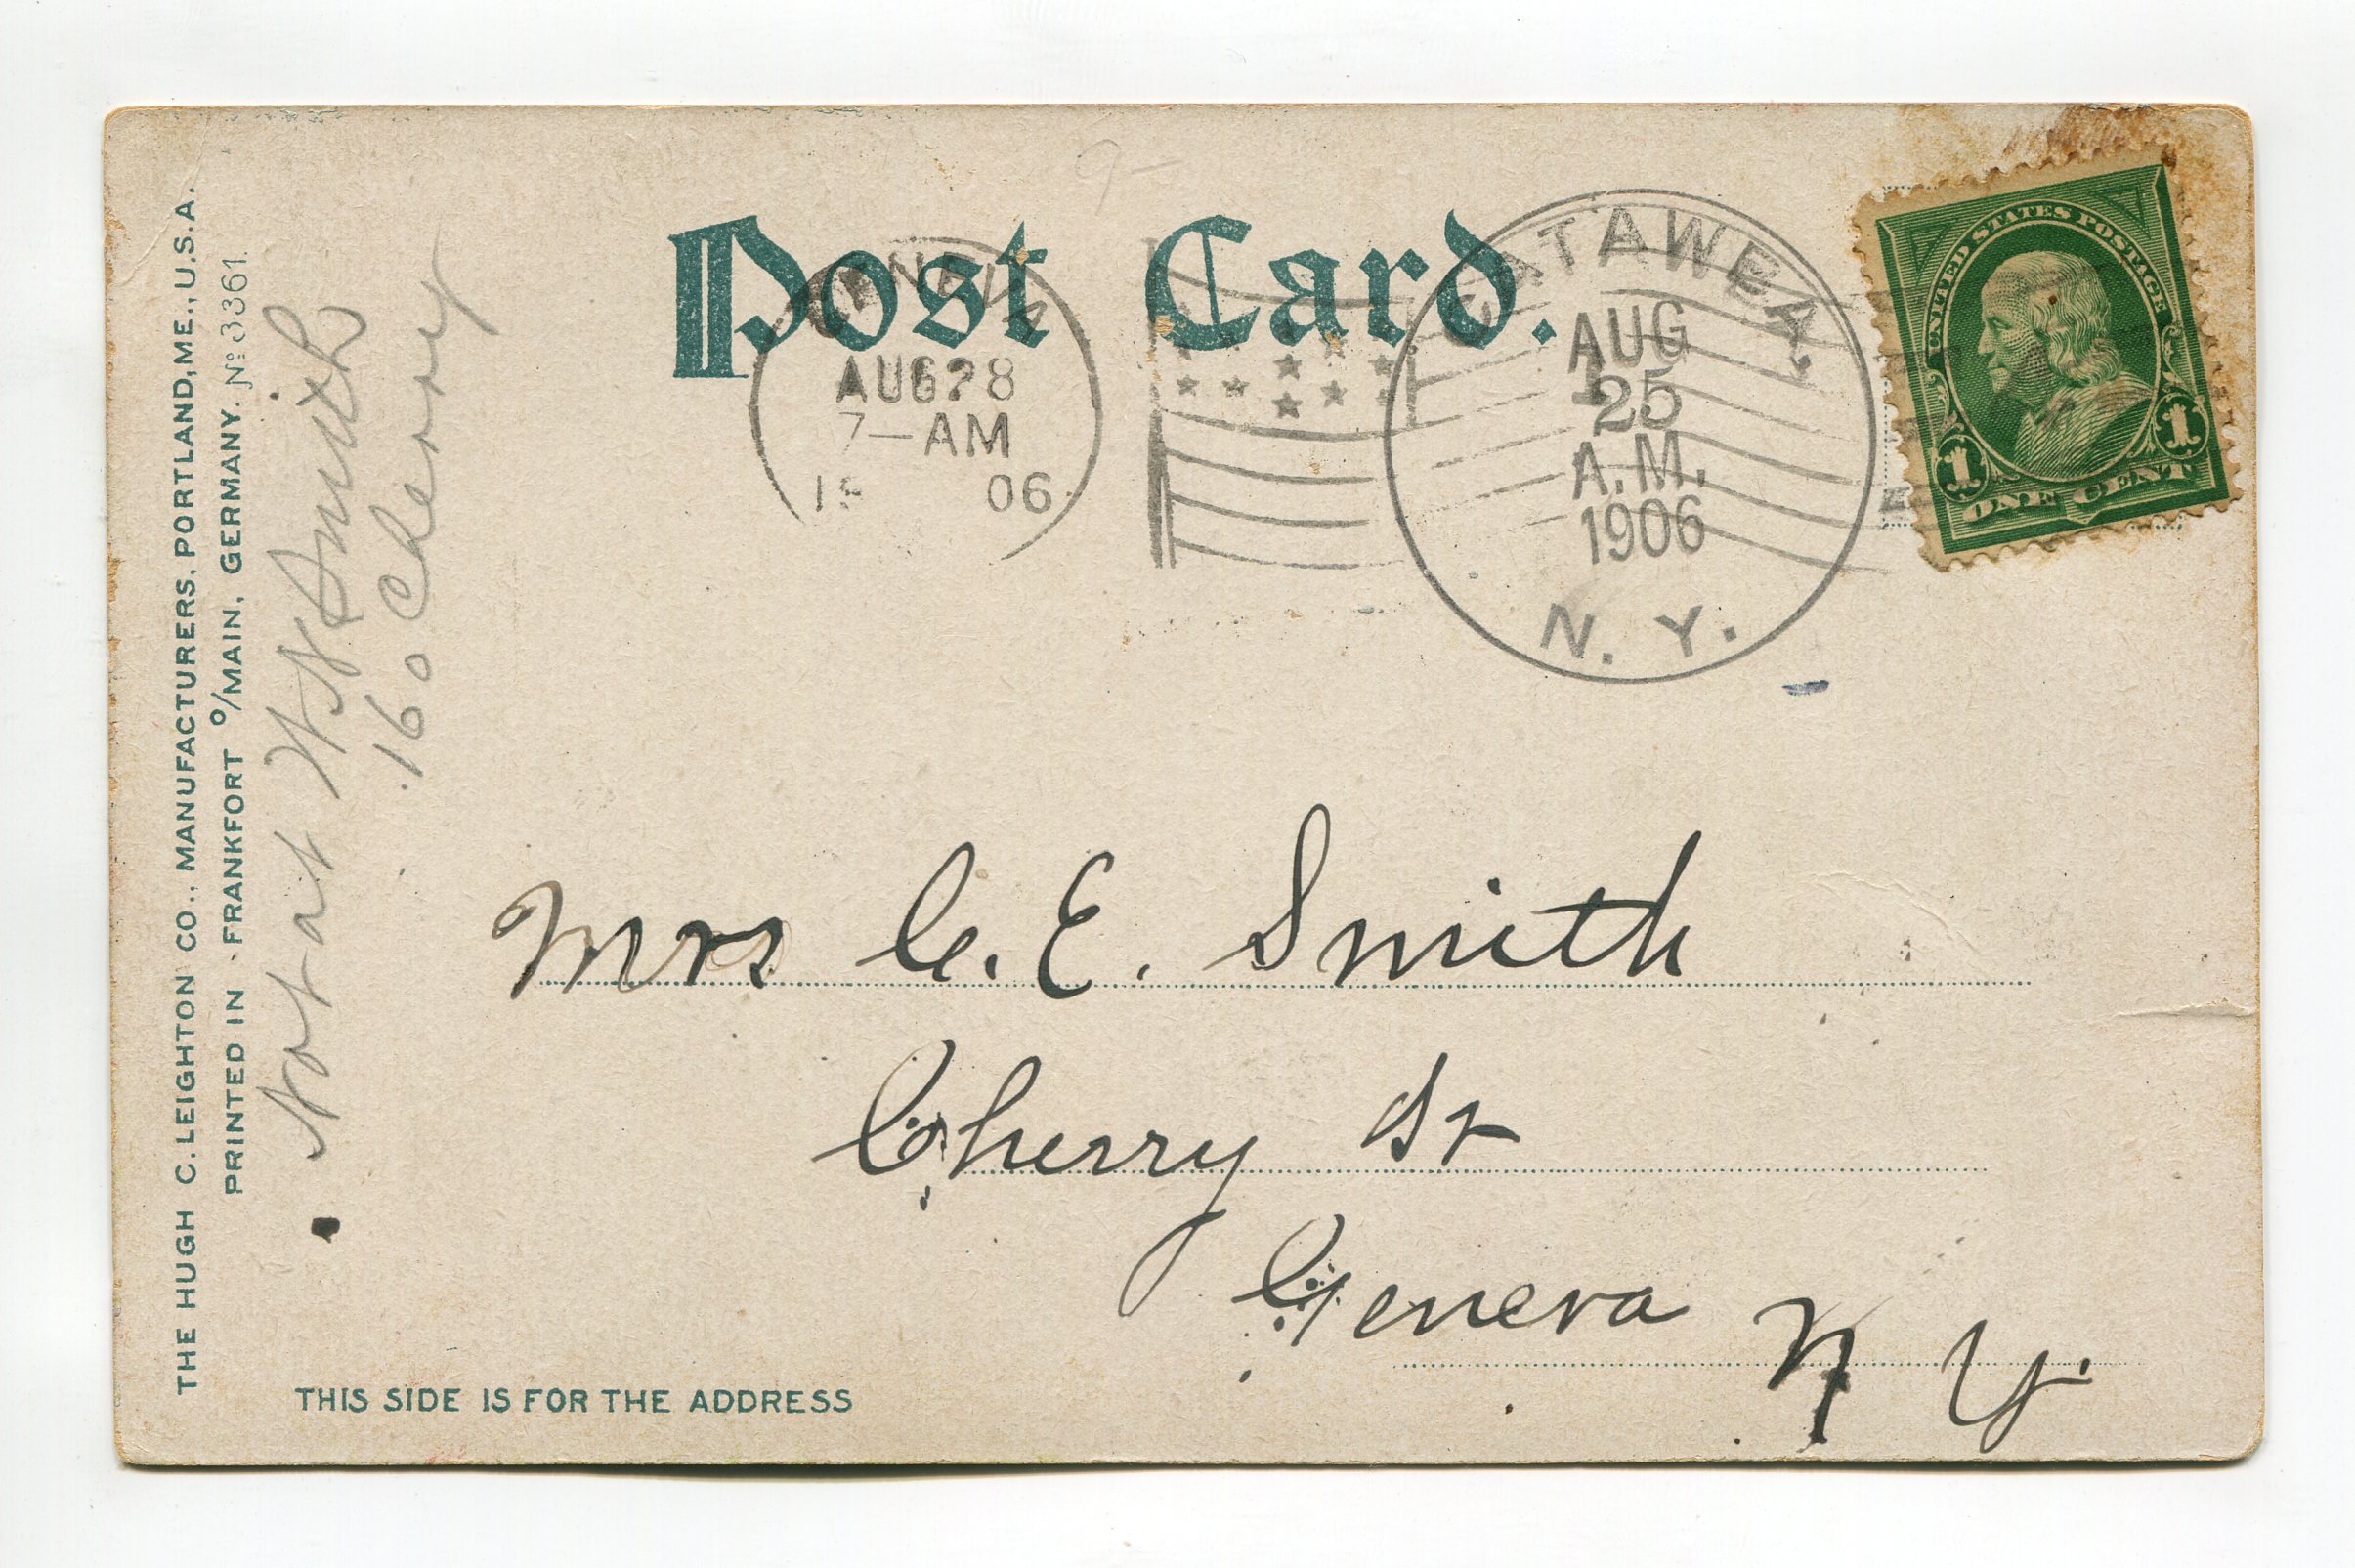 Post Card.
GENEVA
AUG 28
7—AM
06
CATAWBA.
AUG
25
A.M.
1906
N. Y.
UNITED STATES POSTAGE
1 1
ONE CENT
THE HUGH C. LEIGHTON CO., MANUFACTURERS, PORTLAND, ME., U.S.A.
PRINTED IN FRANKFORT o/MAIN, GERMANY. No 3361.
Not at W H Smith
160 Cherry
Mrs C. E. Smith
Cherry St
Geneva N Y.
THIS SIDE IS FOR THE ADDRESS